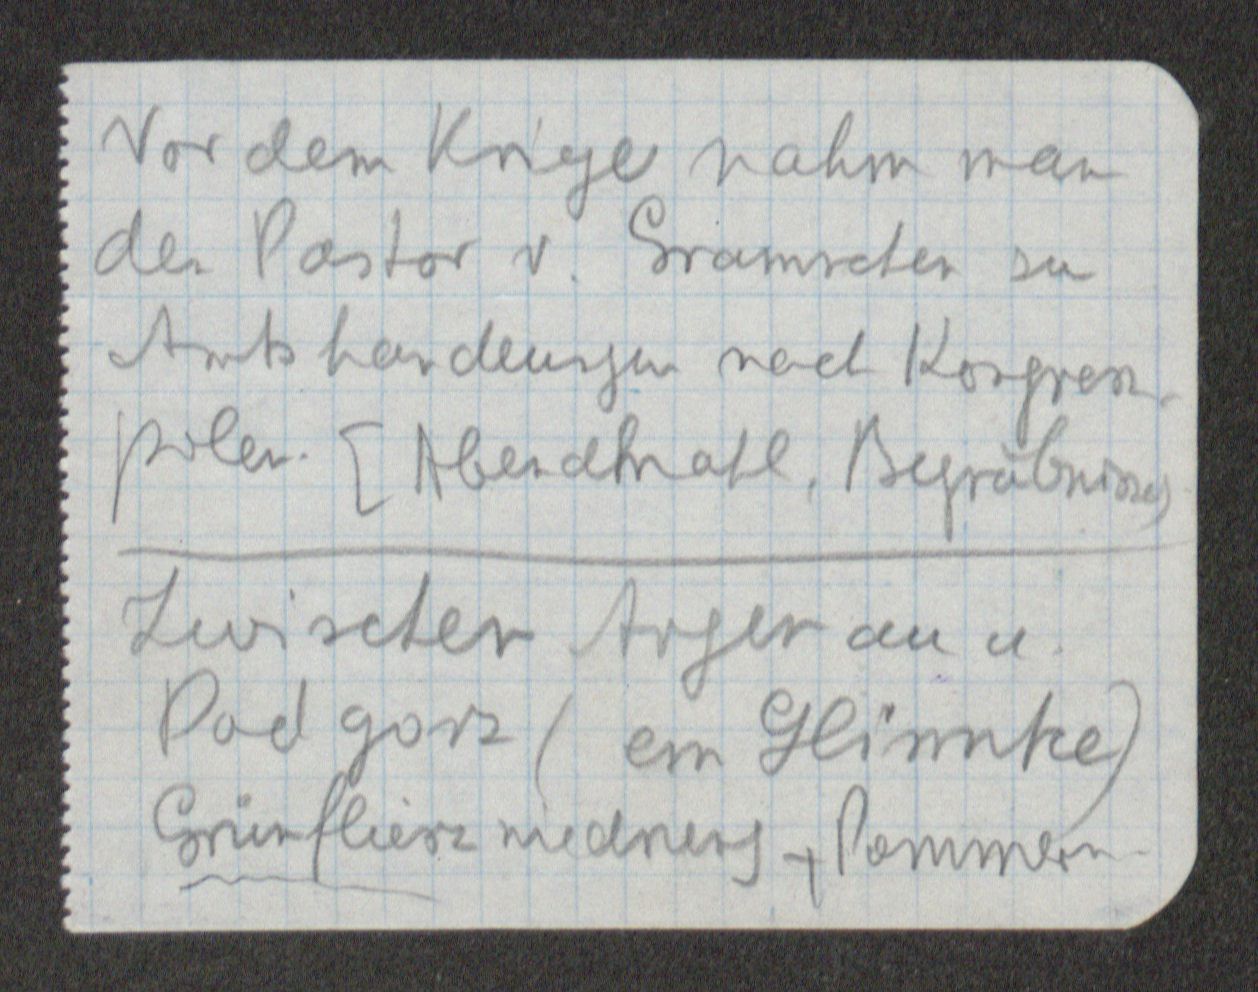 Vor dem Kriege nahm man
den Pastor v. Gramschen zu
Amtshandlungen nach Kongress-
polen. [Abendmahl, Begräbnisse)
Zwischen Argenau u.
Podgorz (ein Glinnke)
Grünfliesz niedrung + Pommern